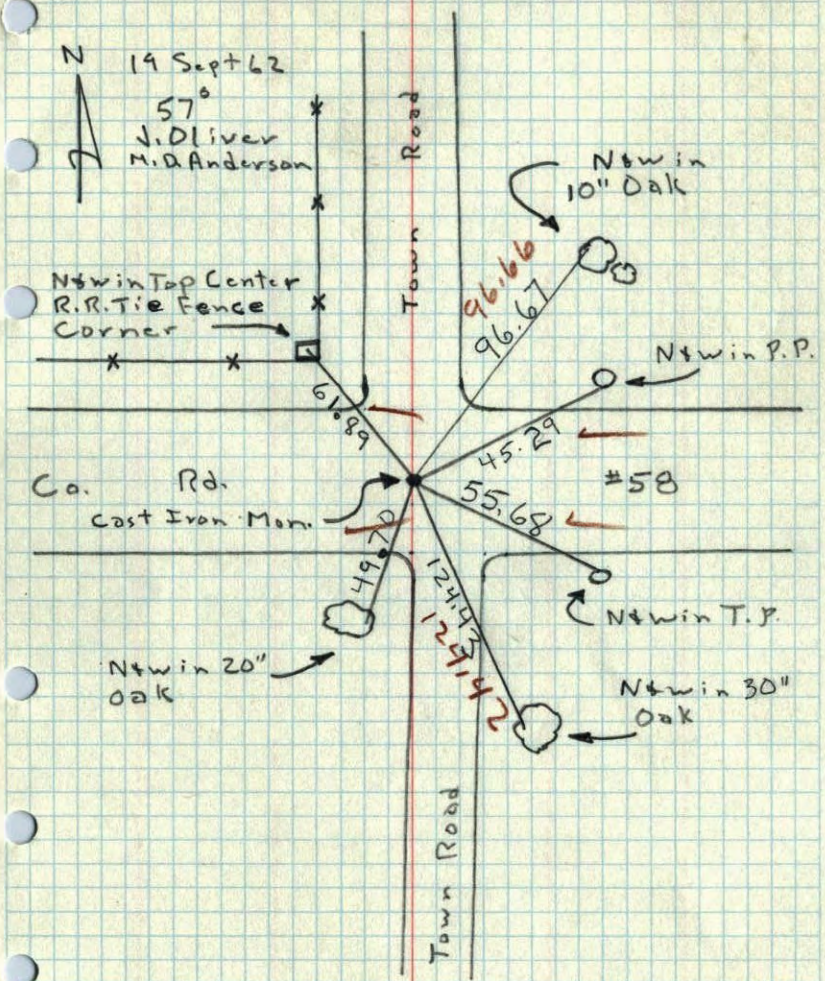 N
19 Sept 62
57°
J. Oliver
M.D. Anderson
Town Road
N&W in
10" Oak
96.66
96.67
N&W in Top Center
R.R. Tie Fence
Corner
N&W in P.P.
61.89
45.29
Co. Rd. #58
Cast Iron Mon.
55.68
49.70
124.43
124.42
N&W in T.P.
N&W in 20"
Oak
N&W in 30"
Oak
Town Road